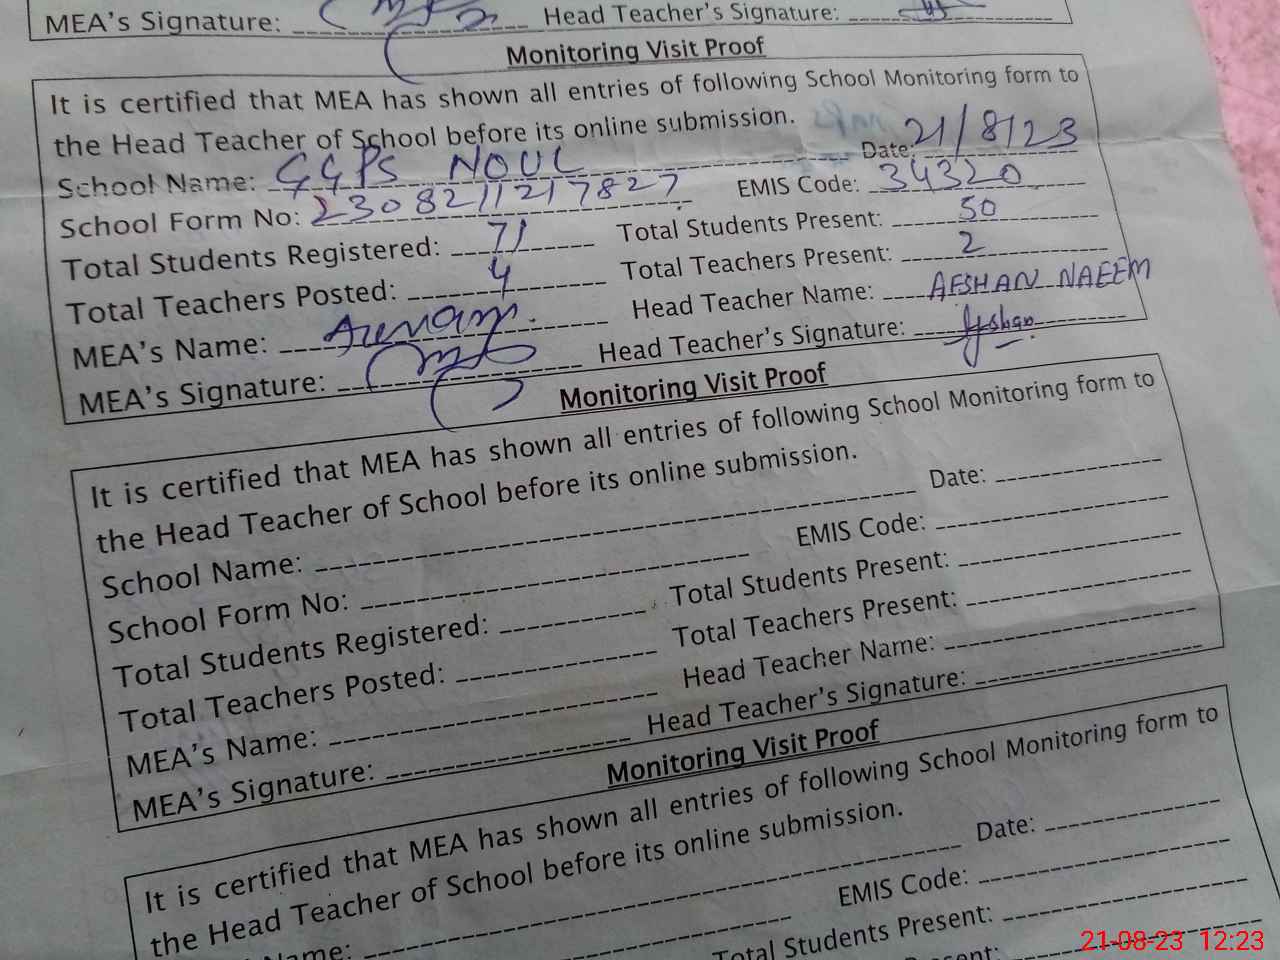 MEA's Signature: Head Teacher's Signature:
Monitoring Visit Proof
It is certified that MEA has shown all entries of following School Monitoring form to
the Head Teacher of School before its online submission.
School Name: GGPS NOUL Date: 21/8/23
School Form No: 2308211217827 EMIS Code: 34320
Total Students Registered: 71 Total Students Present: 50
Total Teachers Posted: 4 Total Teachers Present: 2
MEA's Name: Head Teacher Name: AFSHAN NAEEM
MEA's Signature: Head Teacher's Signature: Afshan
Monitoring Visit Proof
It is certified that MEA has shown all entries of following School Monitoring form to
the Head Teacher of School before its online submission.
School Name: Date:
School Form No: EMIS Code:
Total Students Registered: Total Students Present:
Total Teachers Posted: Total Teachers Present:
MEA's Name: Head Teacher Name:
MEA's Signature: Head Teacher's Signature:
Monitoring Visit Proof
It is certified that MEA has shown all entries of following School Monitoring form to
the Head Teacher of School before its online submission.
Name: Date:
EMIS Code:
Total Students Present:
21-08-23 12:23